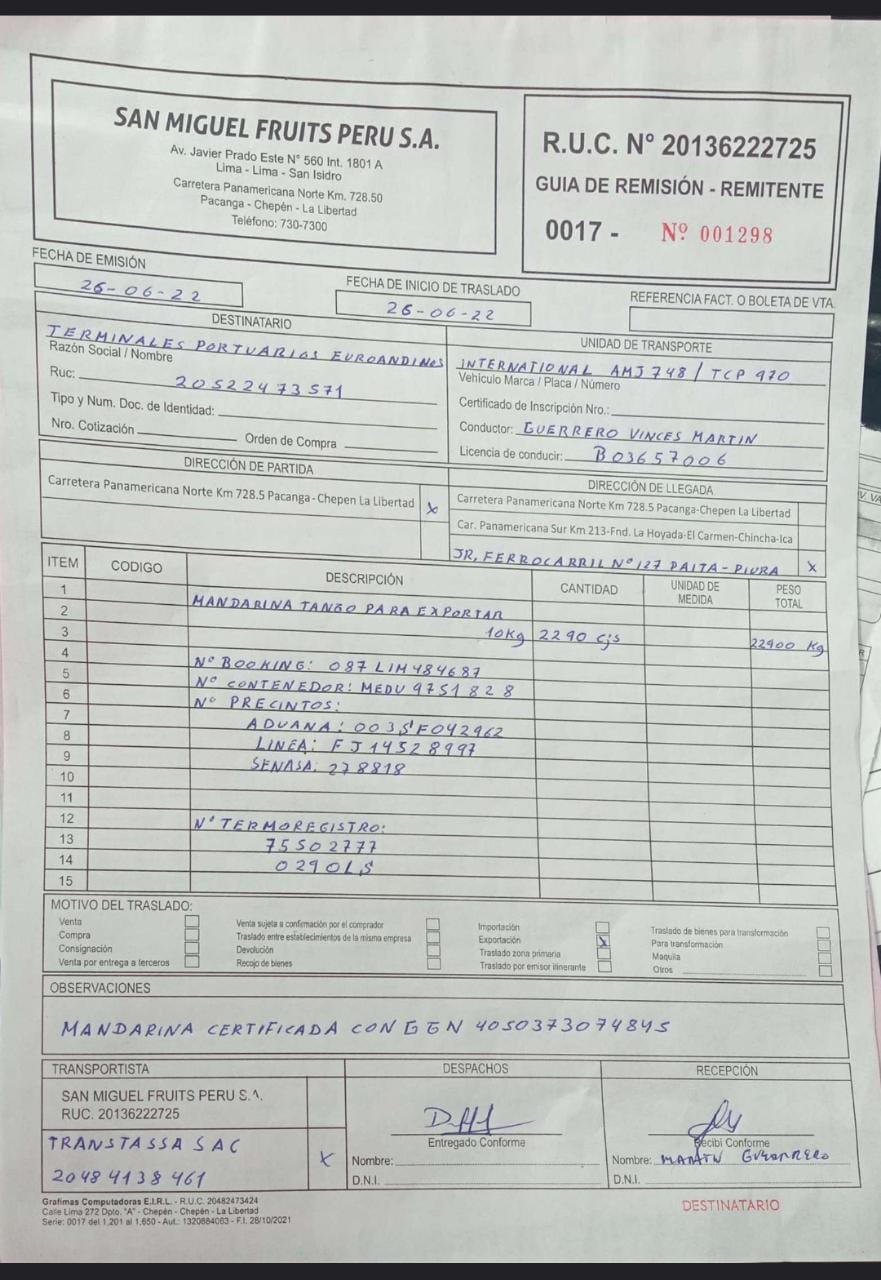 SAN MIGUEL FRUITS PERU S.A.
Av. Javier Prado Este N° 560 Int. 1801 A
Lima - Lima - San Isidro
Carretera Panamericana Norte Km. 728.50
Pacanga - Chepén - La Libertad
Teléfono: 730-7300
R.U.C. Nº 20136222725
GUIA DE REMISIÓN - REMITENTE
0017 - Nº 001298
FECHA DE EMISIÓN
26-06-22
FECHA DE INICIO DE TRASLADO
26-06-22
REFERENCIA FACT. O BOLETA DE VTA.
DESTINATARIO
TERMINALES PORTUARIOS EUROANDINOS
Razón Social / Nombre
Ruc: 20522473571
Tipo y Num. Doc. de Identidad:
Nro. Cotización Orden de Compra
UNIDAD DE TRANSPORTE
INTERNATIONAL AMJ 748 / TCP 970
Vehículo Marca / Placa / Número
Certificado de Inscripción Nro.:
Conductor: GUERRERO VINCES MARTIN
Licencia de conducir: B03657006
DIRECCIÓN DE PARTIDA
Carretera Panamericana Norte Km 728.5 Pacanga-Chepen La Libertad X
DIRECCIÓN DE LLEGADA
Carretera Panamericana Norte Km 728.5 Pacanga-Chepen La Libertad
Car. Panamericana Sur Km 213-Fnd. La Hoyada-El Carmen-Chincha-Ica
JR, FERROCARRIL N°127 PAITA - PIURA X
ITEM CODIGO DESCRIPCIÓN CANTIDAD UNIDAD DE MEDIDA PESO TOTAL
1
2 MANDARINA TANGO PARA EXPORTAR
3 10Kg 2290 cjs 22900 Kg
4
5 N° BOOKING: 087LIM484687
6 N° CONTENEDOR: MEDU 9751828
7 N° PRECINTOS:
8 ADUANA: 003SF042962
9 LINEA: FJ14528997
10 SENASA: 278818
11
12 N° TERMOREGISTRO:
13 75502777
14 0290LS
15
MOTIVO DEL TRASLADO:
Venta
Compra
Consignación
Venta por entrega a terceros
Venta sujeta a confirmación por el comprador
Traslado entre establecimientos de la misma empresa
Devolución
Recojo de bienes
Importación
Exportación X
Traslado zona primaria
Traslado por emisor itinerante
Traslado de bienes para transformación
Para transformación
Maquila
Otros
OBSERVACIONES
MANDARINA CERTIFICADA CON GGN 4050373074845
TRANSPORTISTA
SAN MIGUEL FRUITS PERU S.A.
RUC. 20136222725
TRANSTASSA SAC X
20484138461
DESPACHOS
Entregado Conforme
Nombre:
D.N.I.
RECEPCIÓN
Recibi Conforme
Nombre: MARTIN GUERRERO
D.N.I.
Grafimas Computadoras E.I.R.L. - R.U.C. 20482473424
Calle Lima 272 Dpto. "A" - Chepén - Chepén - La Libertad
Serie: 0017 del 1,201 al 1,650 - Aut.: 1320884063 - F.I. 28/10/2021
DESTINATARIO